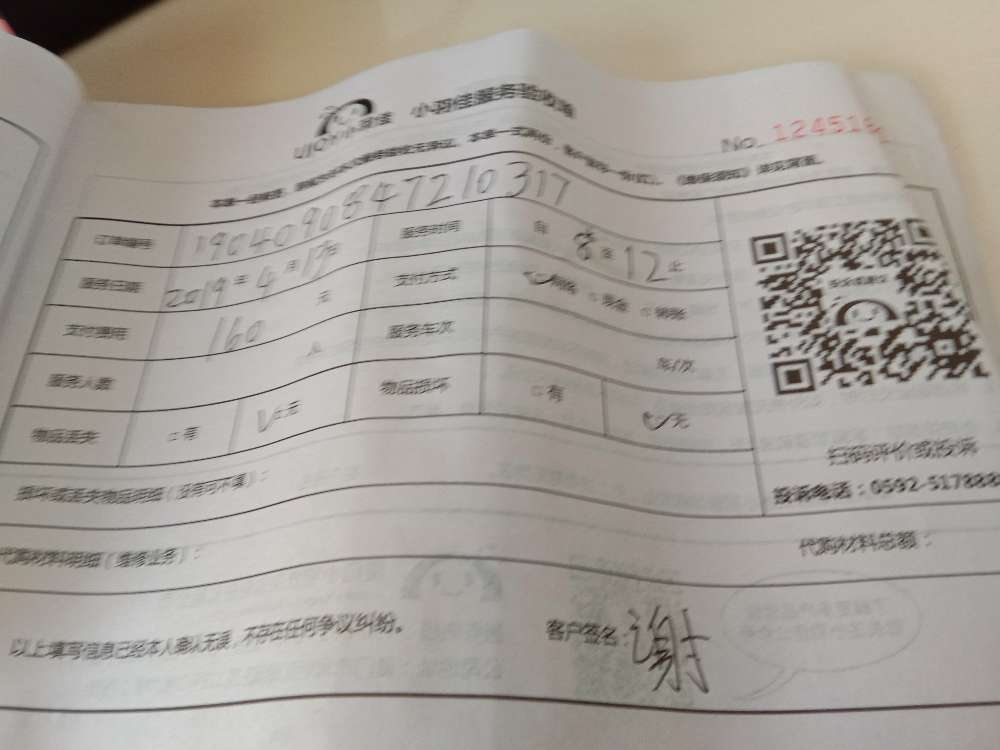 小羽佳服务验收单
No. 124519
订单编号 190409084721031
服务时间 自 8 至 12 止
服务日期 2019年4月17日
支付方式 网络 □现金 □转账
支付费用 160 元
服务车次 车/次
服务人数 人
物品损坏 □有 无
物品丢失 □有 □无
扫码评价或投诉
投诉电话:0592-517888
损坏或丢失物品明细(没有可不填):
代购材料明细(维修业务):
代购材料总额:
以上填写信息已经本人确认无误,不存在任何争议纠纷。
客户签名:谢